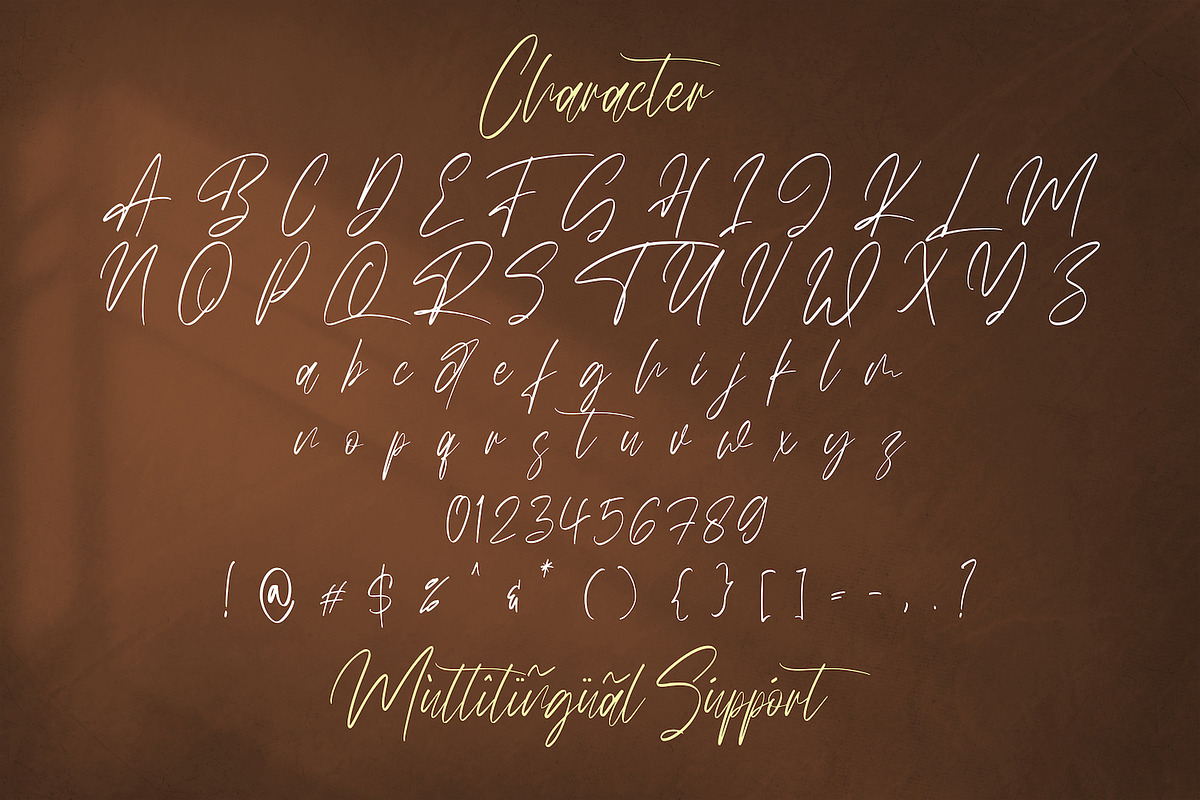 Character
A B C D E F G H I J K L M
N O P Q R S T U V W X Y Z
a b c d e f g h i j k l m
n o p q r s t u v w x y z
0123456789
! @ # $ % ^ & * ( ) { } [ ] = - , . . ?
Mùttîtïñgüãl Súppórt